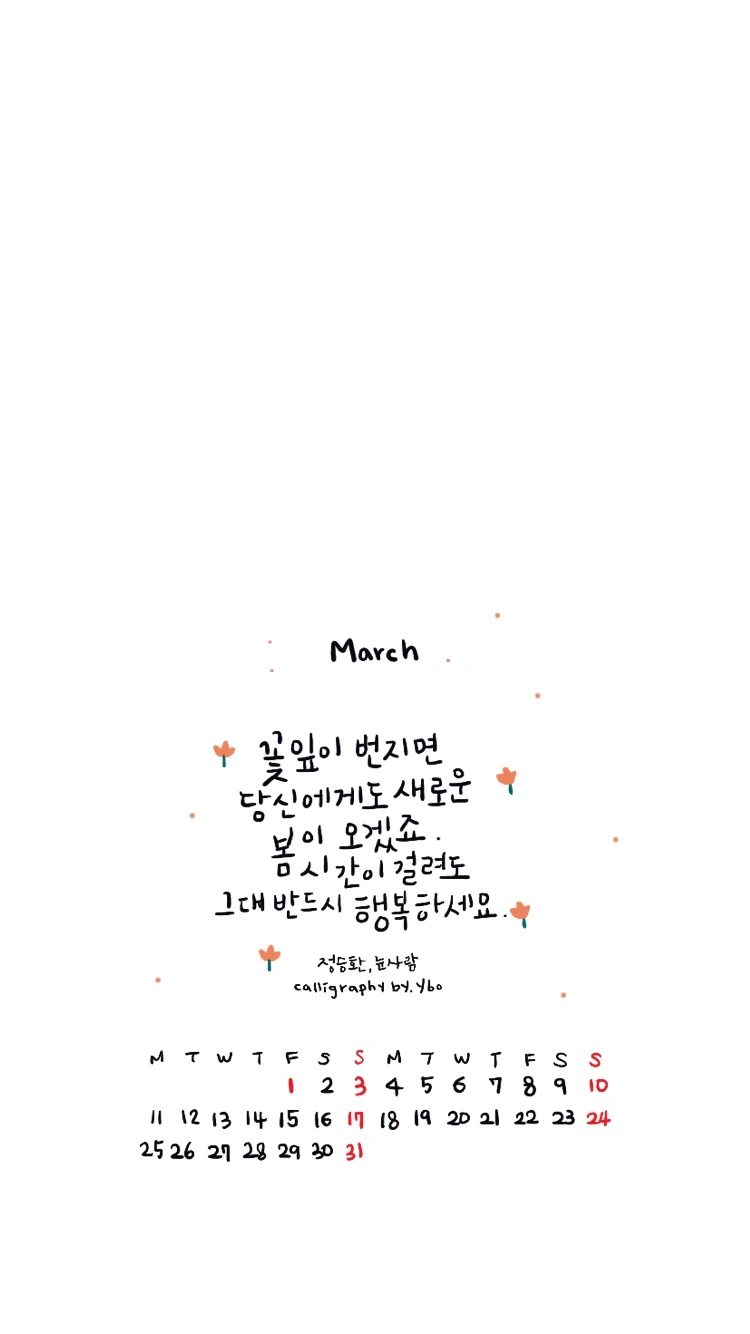 March
꽃잎이 번지면
당신에게도 새로운
봄이 오겠죠.
시간이 걸려도
그대 반드시 행복하세요.
정승환, 눈사람
calligraphy by. ybo
M T W T F S S M T W T F S S
1 2 3 4 5 6 7 8 9 10
11 12 13 14 15 16 17 18 19 20 21 22 23 24
25 26 27 28 29 30 31